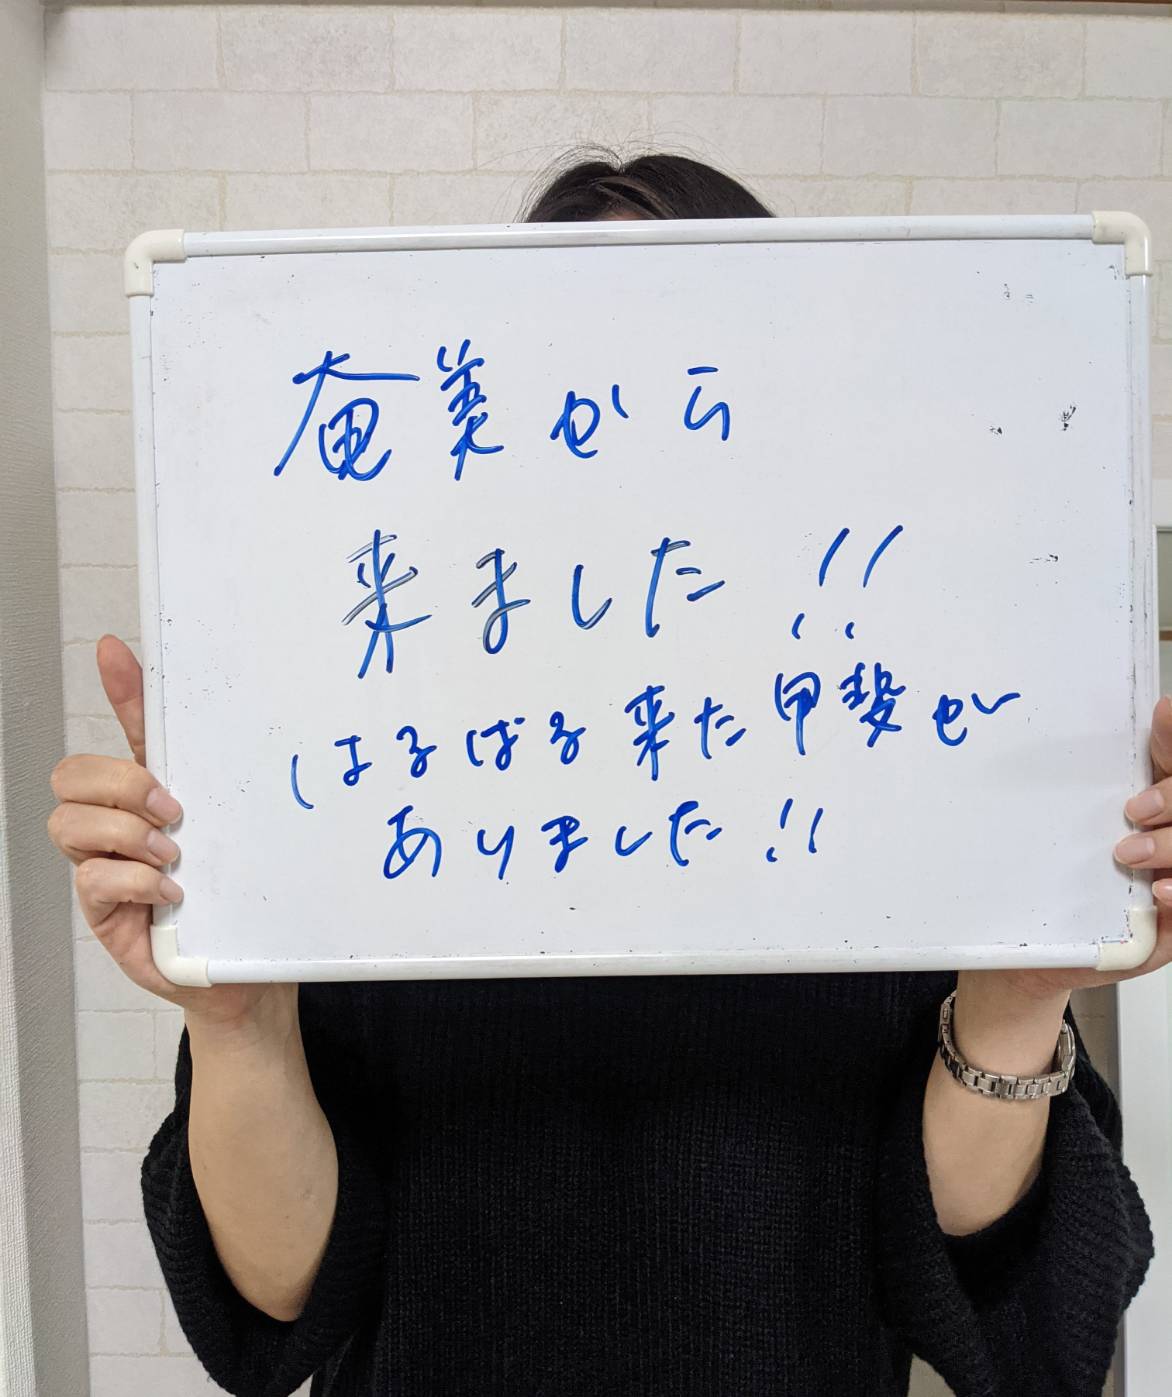 奄美から
来ました!!
はるばる来た甲斐が
ありました!!